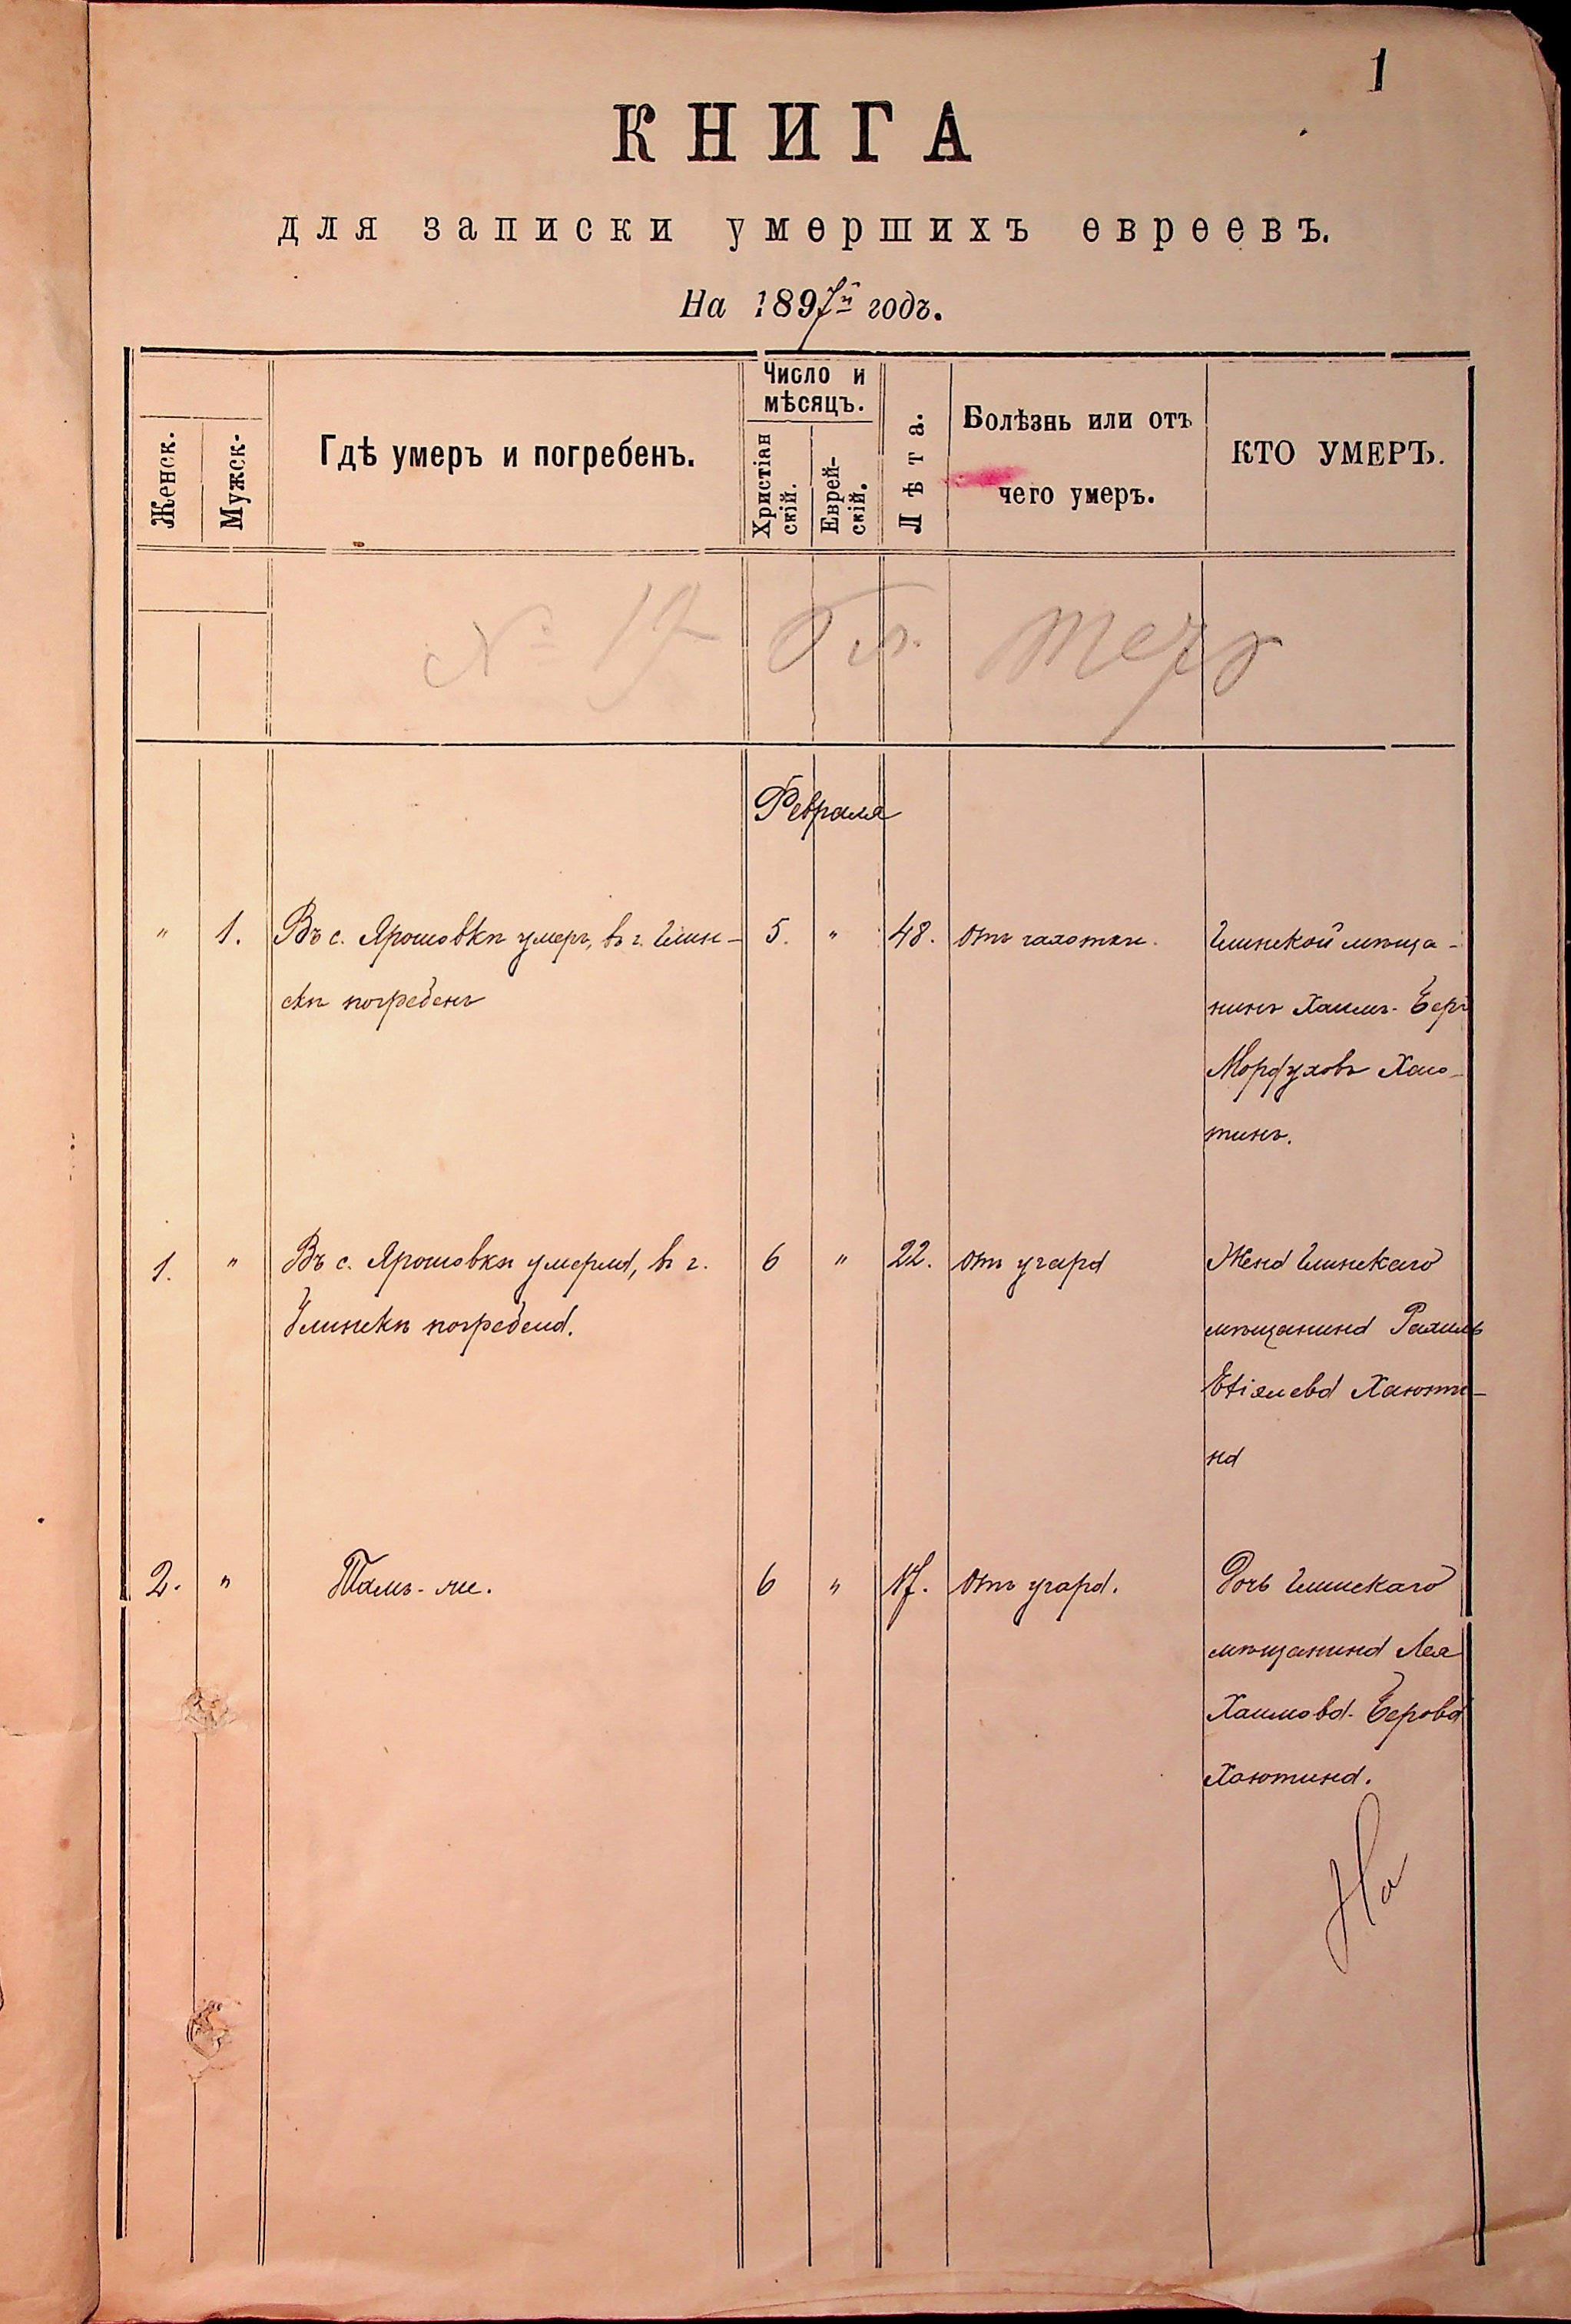 1
КНИГА
для записки умершихъ евреевъ.
На 1897й годъ.
Женск.
Мужск.
Гдѣ умеръ и погребенъ.
Число и
мѣсяцъ.
Христіан
скій.
Еврей-
скій.
Лѣта.
Болѣзнь или отъ
чего умеръ.
КТО УМЕРЪ.
№ 17
Февраля
" 1. Въ с. Ярошовкѣ умеръ, въ г. Глин- 5. " 48. отъ чахотки. Глинской мѣща-
скѣ погребенъ нинъ Хаимъ-Беръ
Мордуховъ Хаю-
тинъ.
1. " Въ с. Ярошовкѣ умерла, въ г. 6 " 22. отъ угара Жена Глинскаго
Глинскѣ погребена. мѣщанина Рахиль
Хаюти-
на
2. " Тамъ-же. 6 " 17. отъ угара. Дочь Глинскаго
мѣщанина Лея
Хаимова-Берова
Хаютина.
На